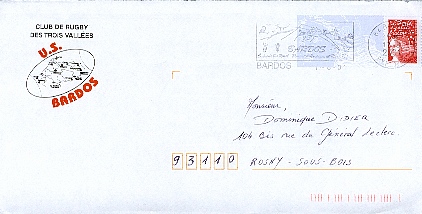 CLUB DE RUGBY
DES TROIS VALLÉES
U.S.
BARDOS
BARDOS
BARDOS
Monsieur,
Dominique DIDIER
104 bis rue du Général Leclerc
93110
ROSNY-SOUS-BOIS